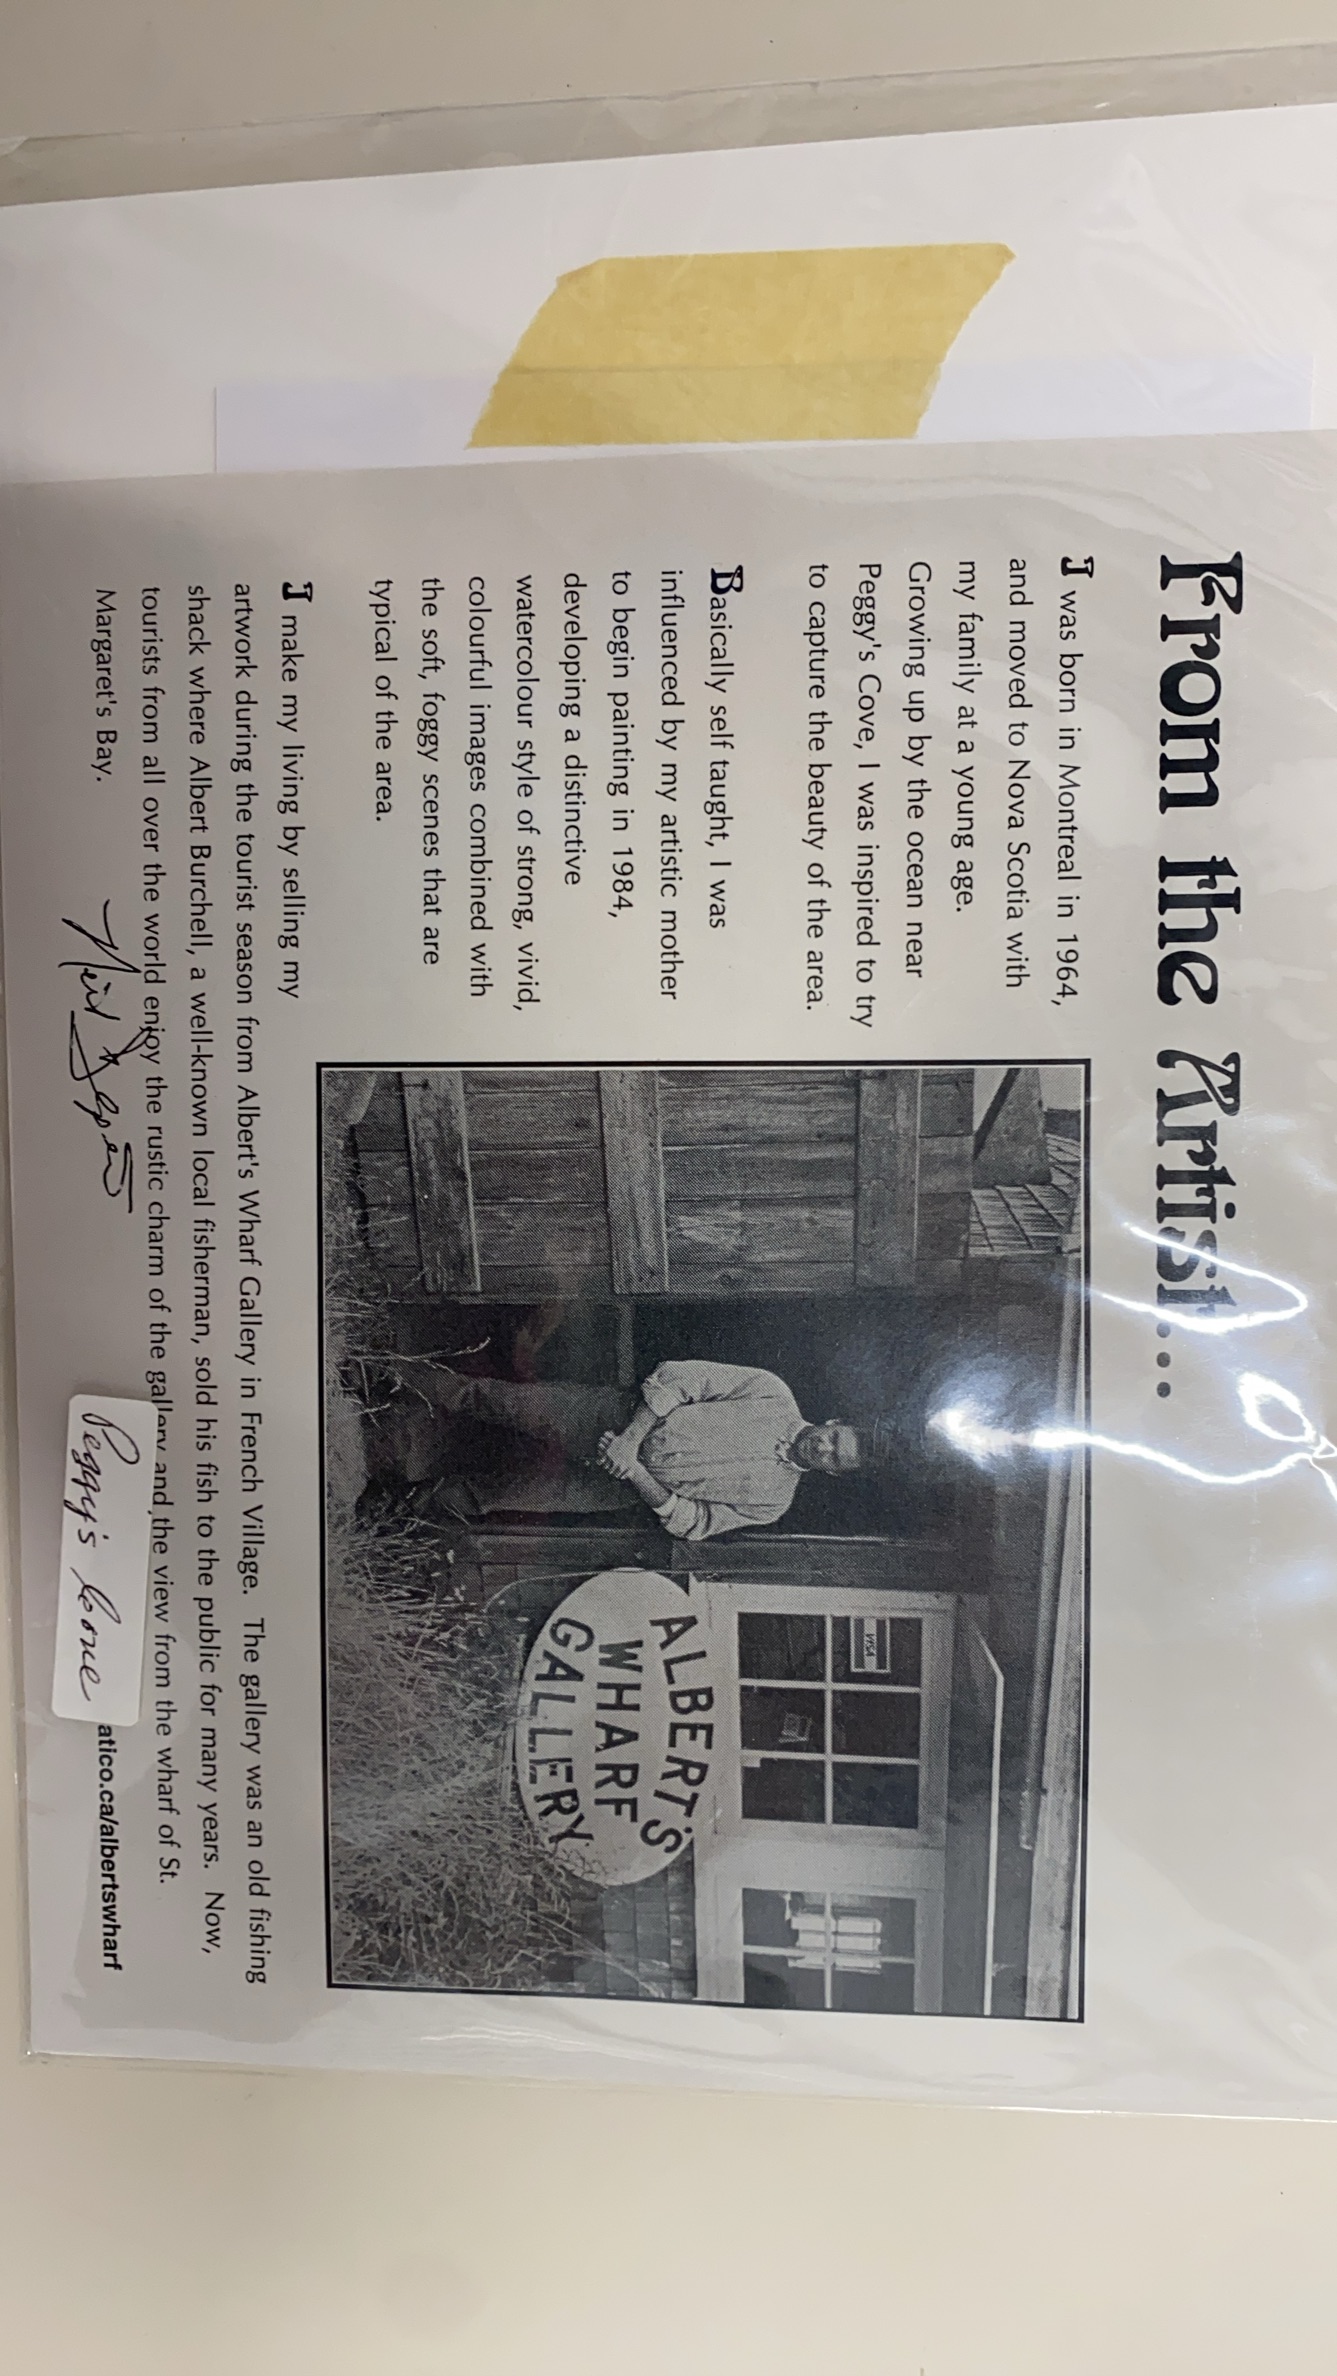 From the Artist...
I was born in Montreal in 1964,
and moved to Nova Scotia with
my family at a young age.
Growing up by the ocean near
Peggy's Cove, I was inspired to try
to capture the beauty of the area.
Basically self taught, I was
influenced by my artistic mother
to begin painting in 1984,
developing a distinctive
watercolour style of strong, vivid,
colourful images combined with
the soft, foggy scenes that are
typical of the area.
ALBERT'S
WHARF
GALLERY
VISA
I make my living by selling my
artwork during the tourist season from Albert's Wharf Gallery in French Village. The gallery was an old fishing
shack where Albert Burchell, a well-known local fisherman, sold his fish to the public for many years. Now,
tourists from all over the world enjoy the rustic charm of the gallery and the view from the wharf of St.
Margaret's Bay.
Neil
Peggy's Cove
atico.ca/albertswharf